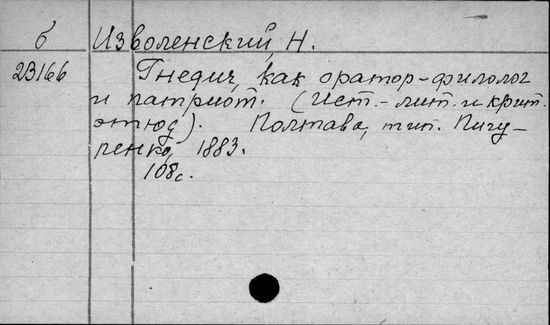 б Изволенский, Н.
23166 Гнедич, как оратор-филолог
и патриот. (Ист.-лит. и крит.
этюд). Полтава, тип. Пигу-
ренко, 1883.
108с.